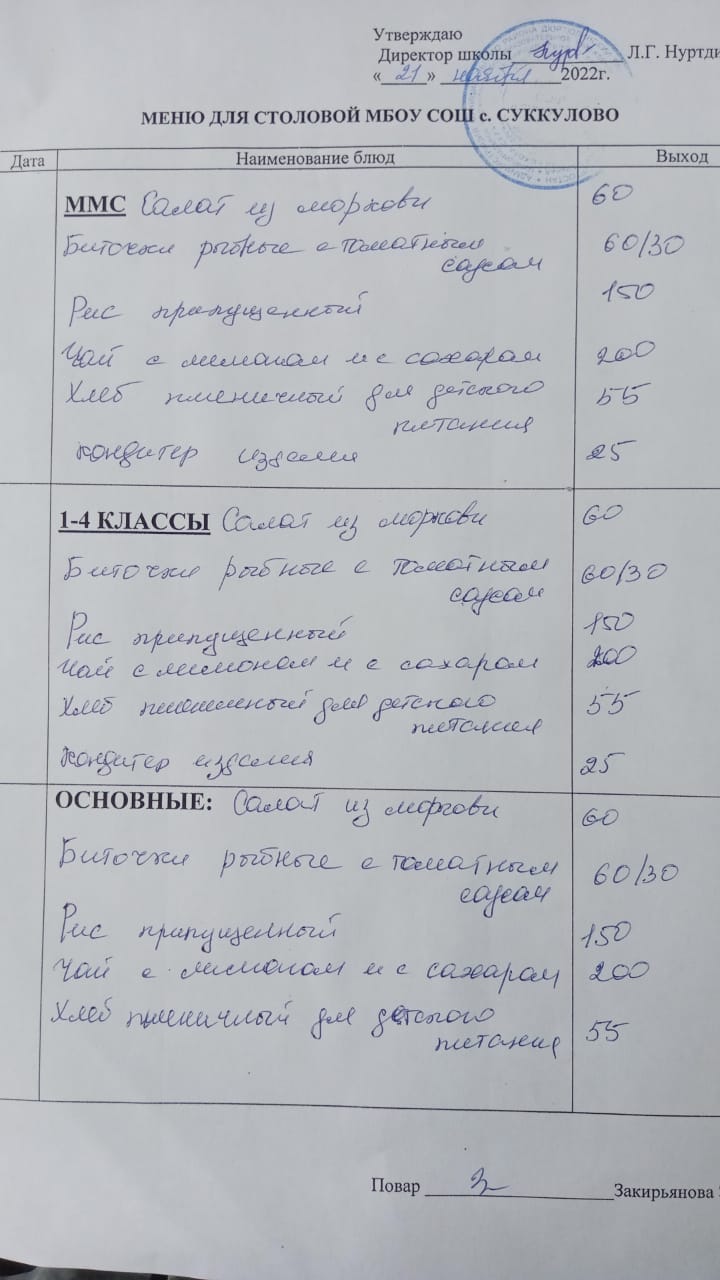 Утверждаю
Директор школы Л.Г. Нуртди
«21» ноября 2022г.
МЕНЮ ДЛЯ СТОЛОВОЙ МБОУ СОШ с. СУККУЛОВО
Дата Наименование блюд Выход
ММС Салат из моркови 60
Биточки рыбные с томатным 60/30
соусом
Рис припущенный 150
Чай с лимоном и с сахаром 200
Хлеб пшеничный для детского 55
питания
кондитер изделия 25
1-4 КЛАССЫ Салат из моркови 60
Биточки рыбные с томатным 60/30
соусом
Рис припущенный 150
Чай с лимоном и с сахаром 200
Хлеб пшеничный для детского 55
питания
кондитер изделия 25
ОСНОВНЫЕ: Салат из моркови 60
Биточки рыбные с томатным 60/30
соусом
Рис припущенный 150
Чай с лимоном и с сахаром 200
Хлеб пшеничный для детского 55
питания
Повар Закирьянова